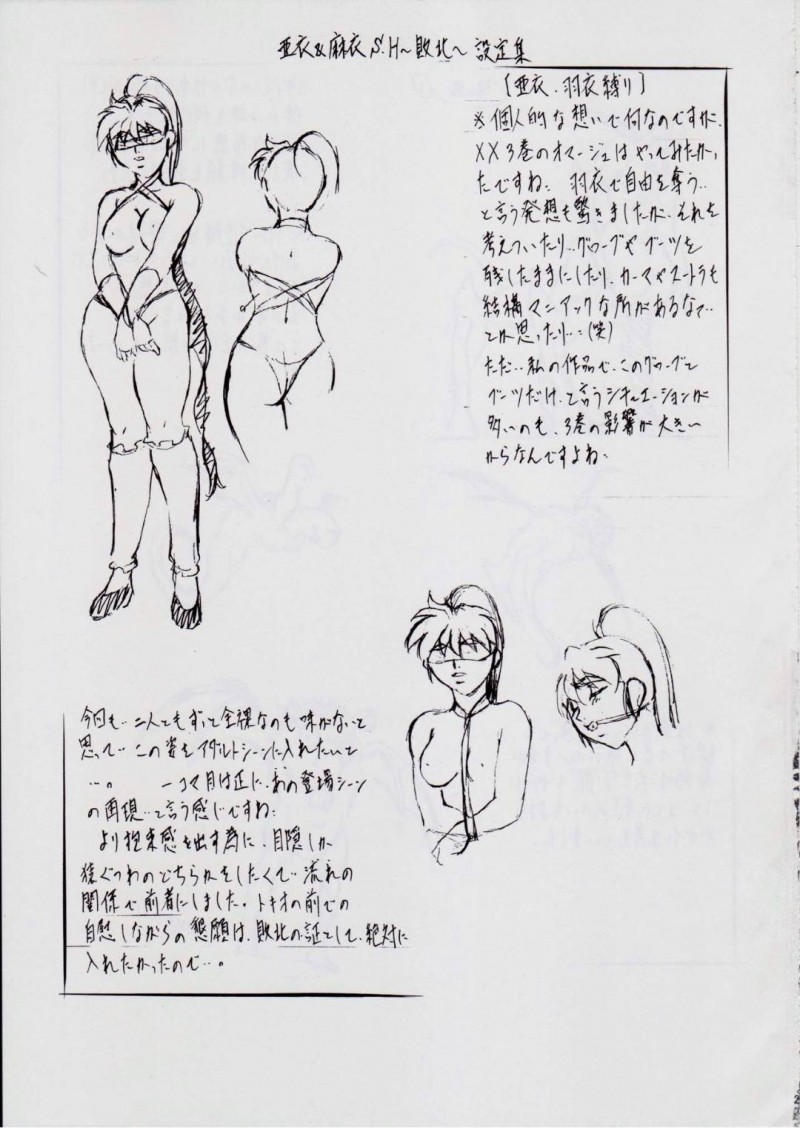 亜衣&麻衣 S.H～敗北～ 設定集
[亜衣.羽衣縛り]
※個人的な想いで何なのですが、
XX3巻のオマージュはやってみたかっ
たですね。羽衣で自由を奪う‥
と言う発想も驚きましたが、それを
考えていたり‥グローブやブーツを
残したままにしたり、カーマやスートラも
結構マニアックな所があるなって‥
とか思ったり‥(笑)
ただ‥私の作品で、このグローブと
ブーツだけ、と言うシチュエーションが
多いのも、3巻の影響が大きい
からなんですよね。
今回も‥二人ともずっと全裸なのも味がないと
思って‥この姿をアダルトシーンに入れたいて
‥。一コマ目は正に、あの登場シーン
の再現‥と言う感じですね。
より拘束感を出す為に、目隠しか
猿ぐつわのどちらかをしたくて‥流れの
関係で前者にしました。トキオの前での
自慰しながらの懇願は、敗北の証として、絶対に
入れたかったので‥。